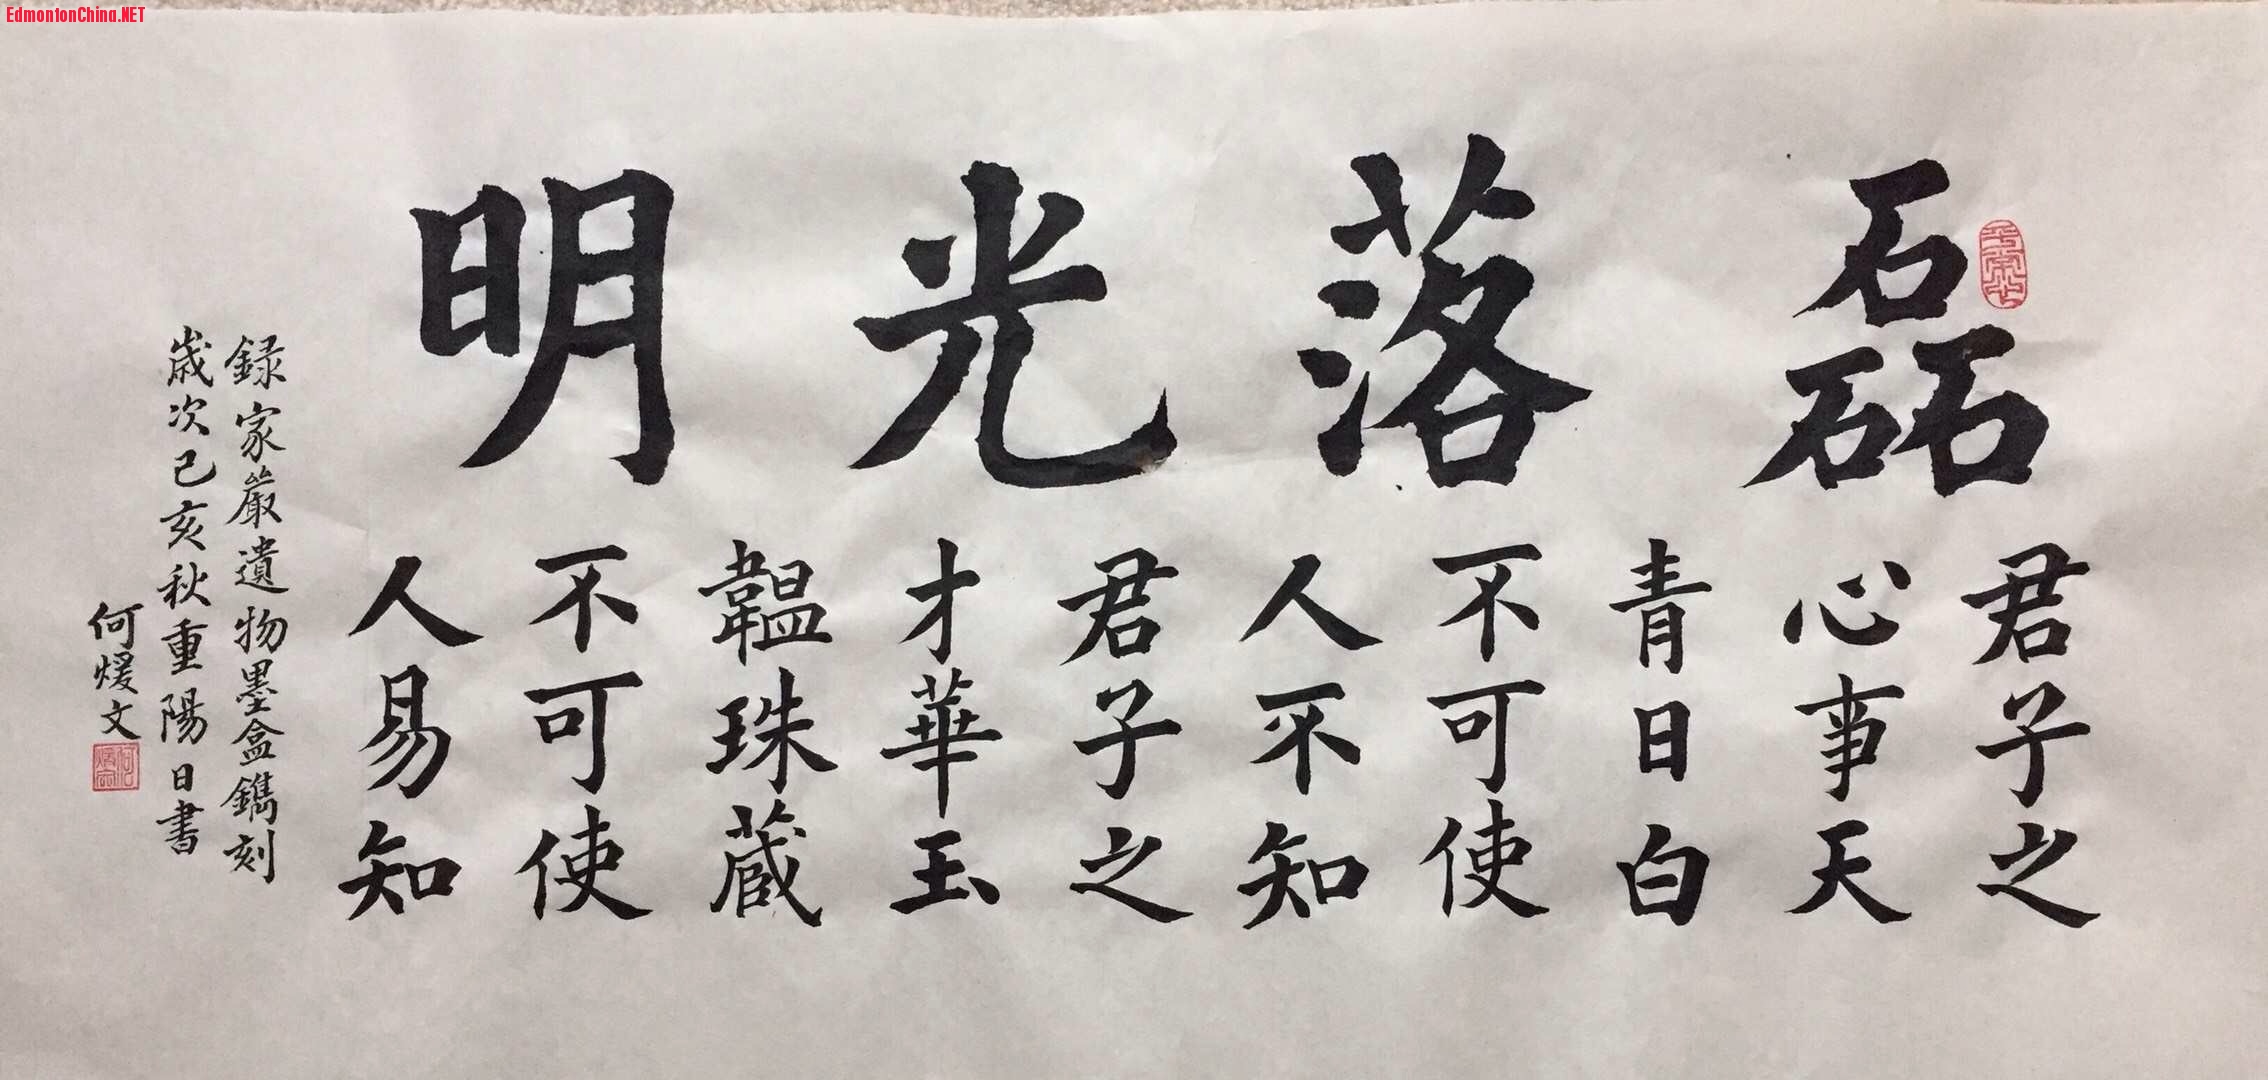 EdmontonChina.NET
磊落光明
君子之
心事天
青日白
不可使
人不知
君子之
才華玉
韞珠蔵
不可使
人易知
録家嚴遺物墨盒鐫刻
歲次己亥秋重陽日書
何煖文
平常心